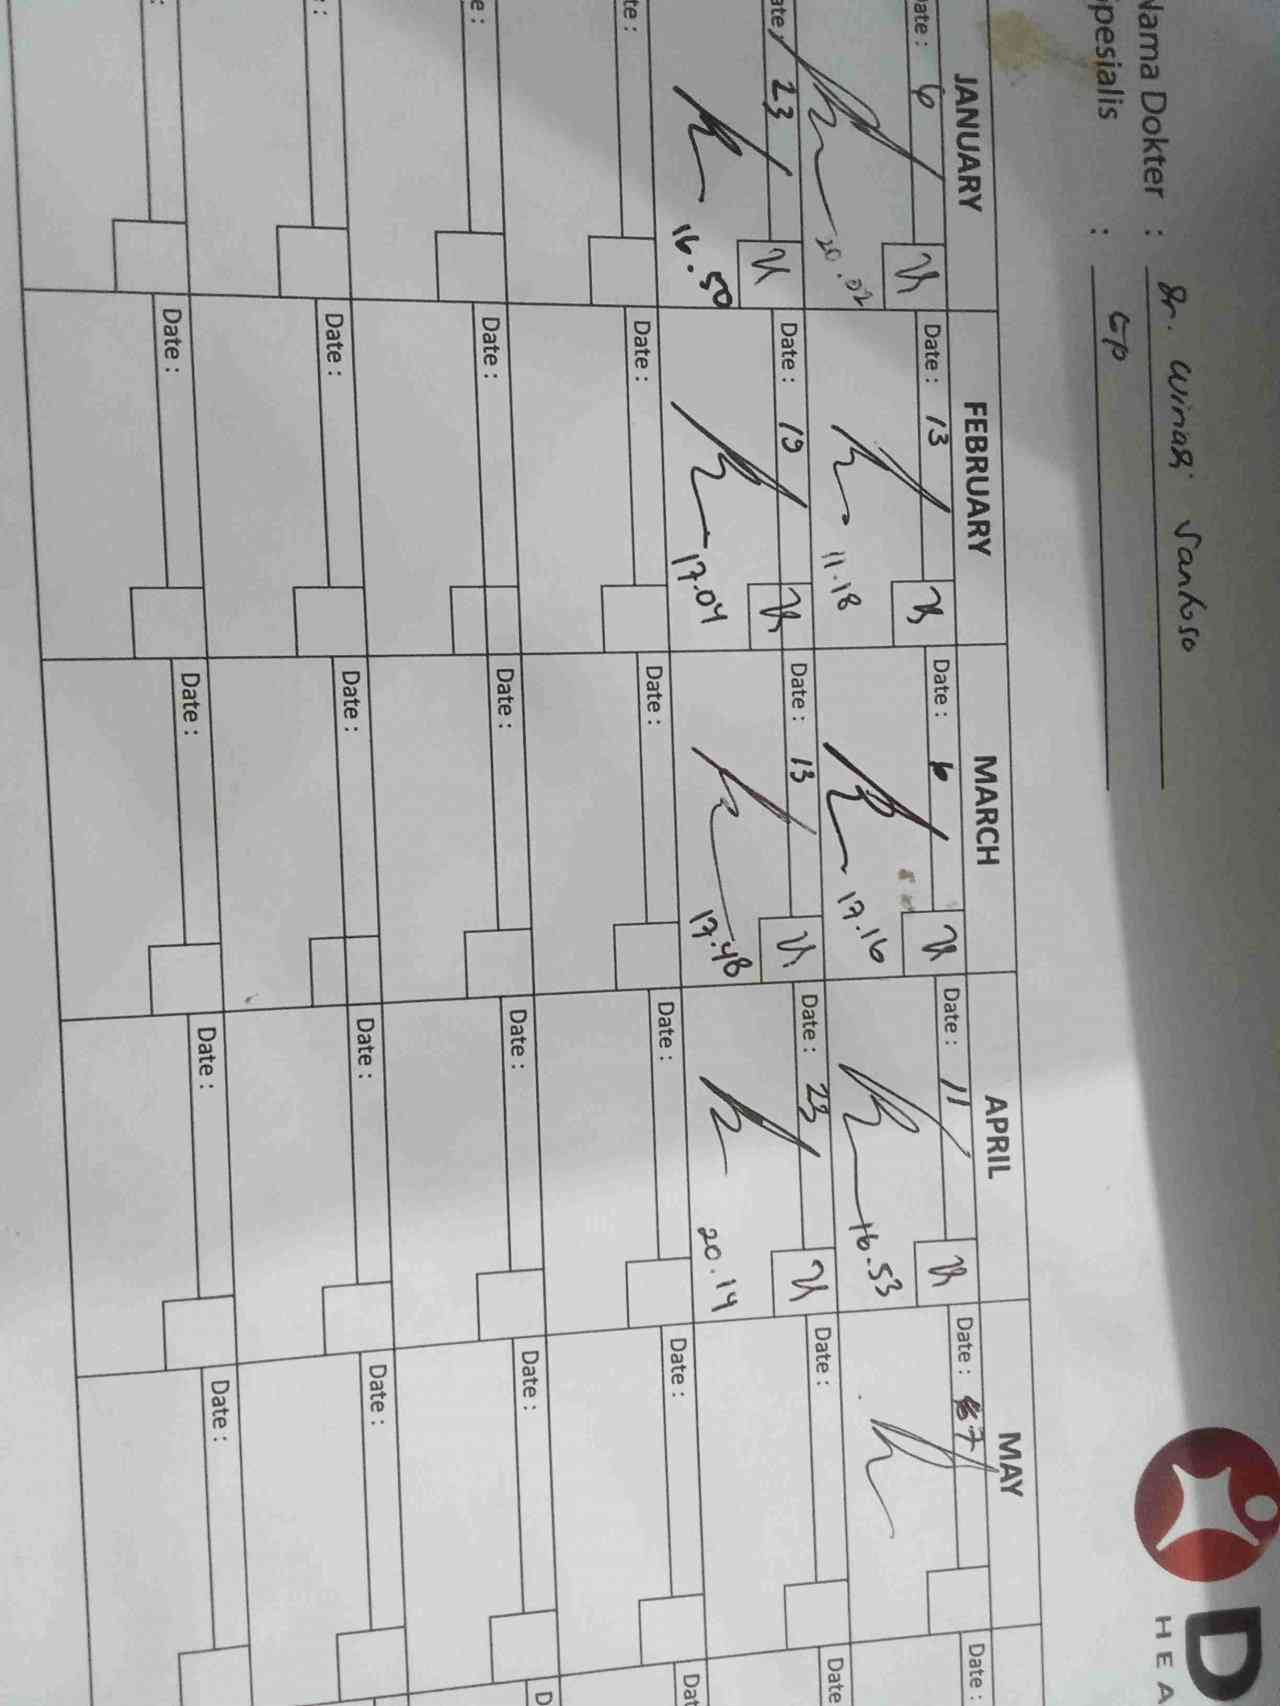 D
HEA
Nama Dokter : dr. Winasi Santoso
Spesialis : GP
JANUARY FEBRUARY MARCH APRIL MAY
Date : 6 Date : 13 Date : 6 Date : 11 Date : 7 Date :
20.02 11.18 17.16 16.53
Date : 23 Date : 19 Date : 13 Date : 23 Date : Date
16.50 17.04 17.48 20.14
te : Date : Date : Date : Date : Dat
e : Date : Date : Date : Date : D
: Date : Date : Date : Date :
: Date : Date : Date : Date :